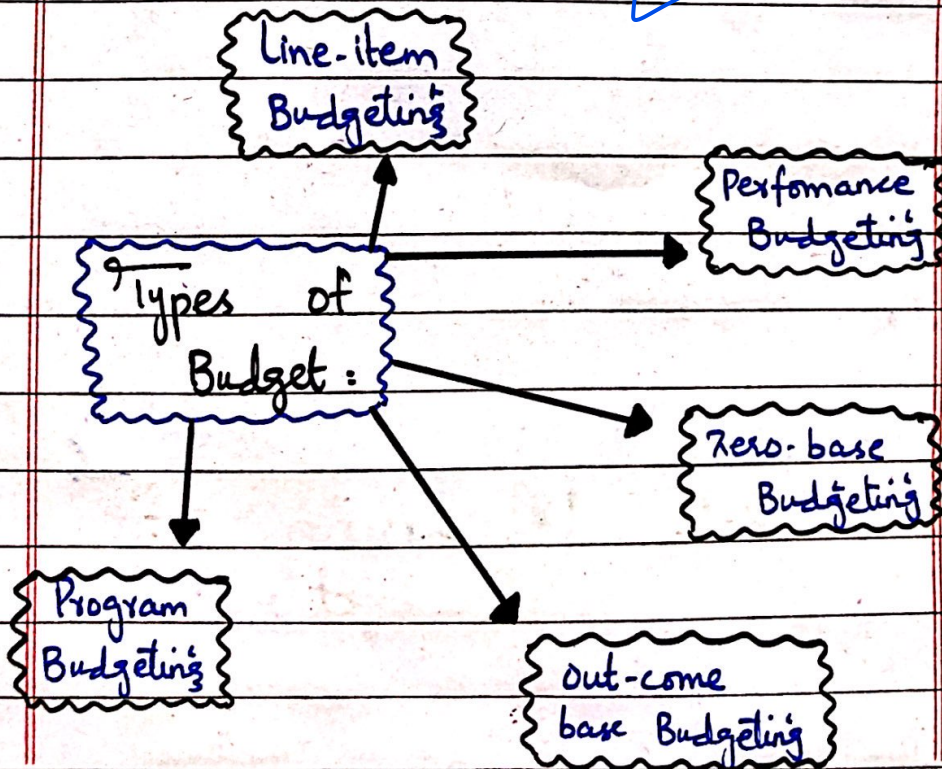 Line-item
Budgeting
Perfomance
Budgeting
Types of
Budget :
Zero-base
Budgeting
Program
Budgeting
Out-come
base Budgeting